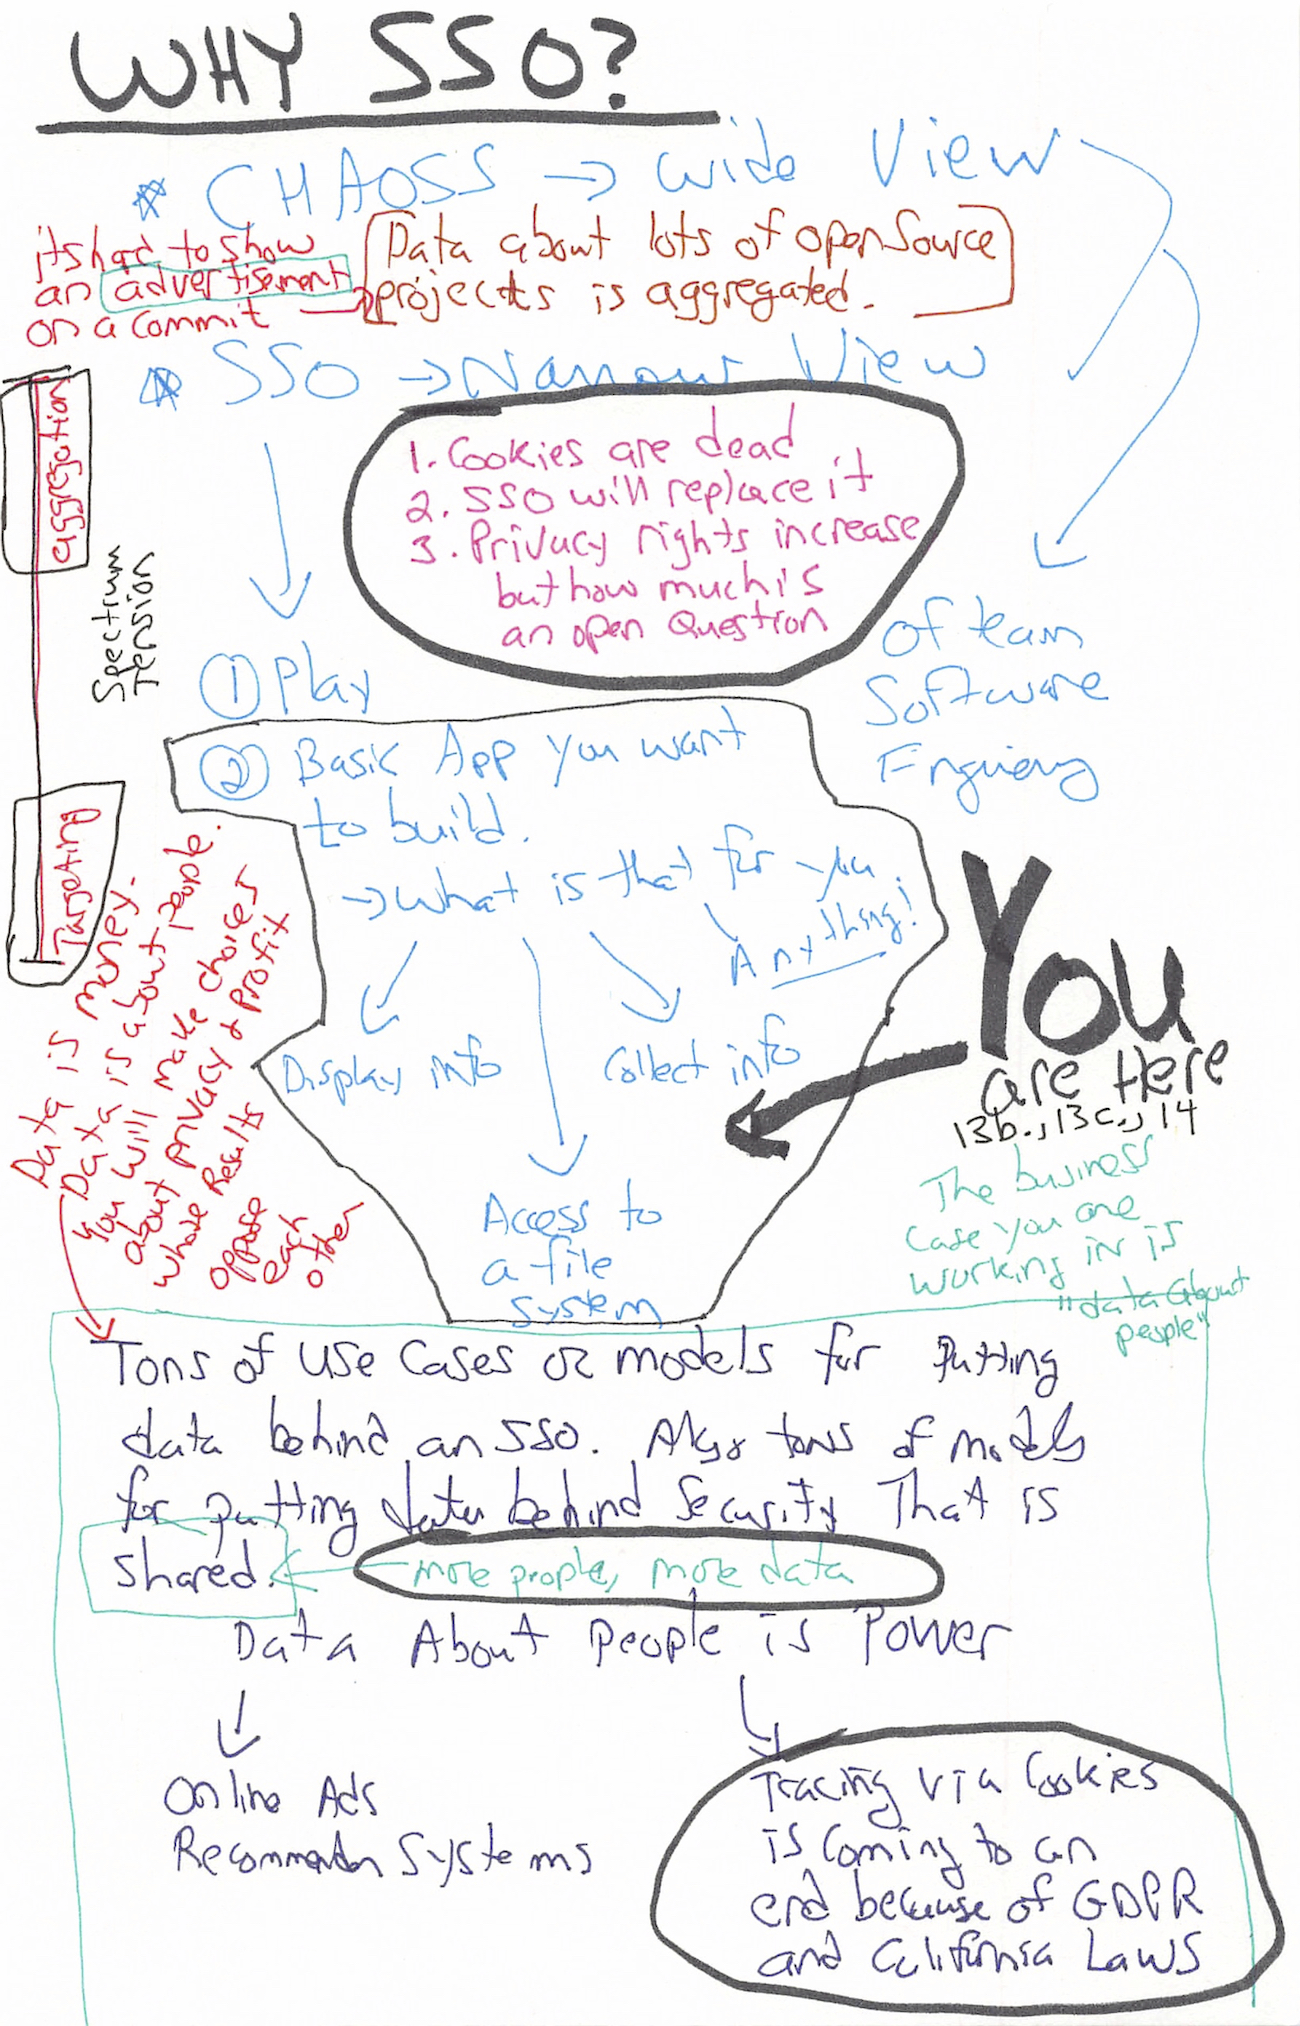 WHY SSO?
* CHAOSS → Wide View
its hard to show
an advertisement
on a commit →
Data about lots of open Source
projects is aggregated.
* SSO → Narrow View
1. Cookies are dead
2. SSO will replace it
3. Privacy rights increase
but how much is
an open Question
aggregation
Spectrum
Tension
Targeting
of team
Software
① Play
② Basic App you want
to build.
→ What is that for you.
Anything!
Display info
Collect info
Access to
a file
System
You
are Here
13b., 13c., 14
The business
case you are
working in is
"data about
people"
Data is money.
Data is about people.
You will make choices
about privacy & profit
whose Results
oppose
each
other
Tons of use cases or models for putting
data behind an SSO. Also tons of models
for putting data behind Security That is
shared.
more people, more data
Data About People is Power
Online Ads
Systems
Tracing via Cookies
is coming to an
end because of GDPR
and California Laws